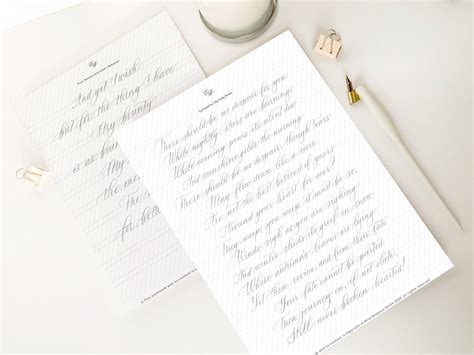 And yet I wish
but for the thing I have
My bounty
is as boun
My
the mo
for both
Sympathy by Emily Bronte
There should be no despair for you
While nightly stars are burning;
While evening pours its silent dew
And sunshine gilds the morning.
There should be no despair, though tears
May flow down like a river:
Are not the best beloved of years
Around your heart for ever?
They weep, you weep, it must be so;
Winds sigh as you are sighing,
And winter sheds its grief in snow
Where autumn's leaves are lying:
Yet these revive, and from their fate
Your fate cannot be parted,
Then journey on, if not elate,
Still never broken-hearted!